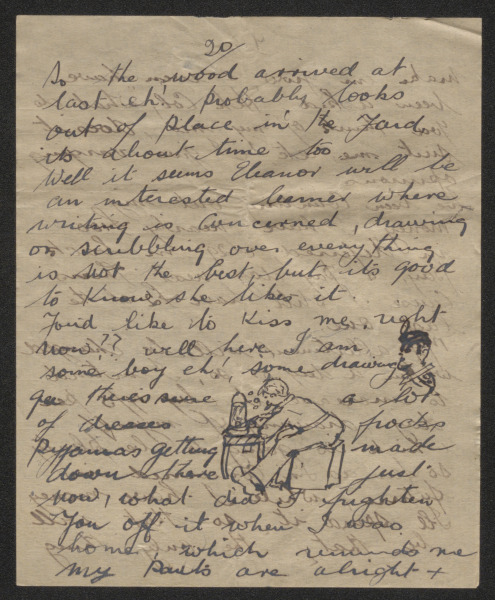 20/
So the wood arrived at
last eh! probably looks
out of place in the Yard
its about time too
Well it seems Eleanor will be
an interested learner where
writing is concerned, drawing
or scribbling over everything
is not the best but its good
to know she likes it.
You'd like to kiss me right
now?? well here I am
some boy eh! some drawing
gee theres sure a lot
of dresses frocks
Pyjamas getting made
down there just
now, what did I frighten
You off it when I was
home which reminds me
my Pants are alright +